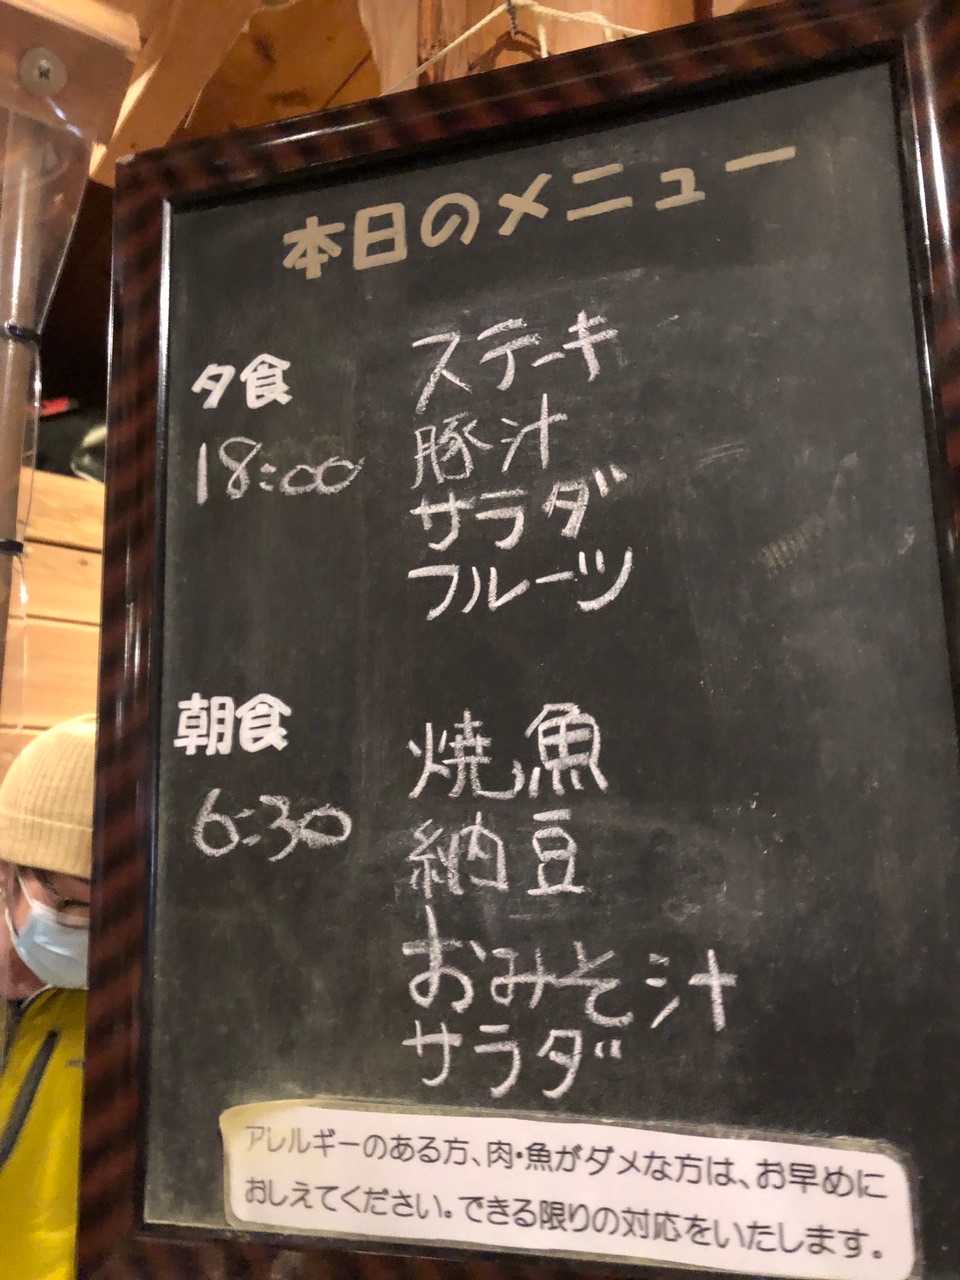 本日のメニュー
夕食
18:00
ステーキ
豚汁
サラダ
フルーツ
朝食
6:30
焼魚
納豆
おみそ汁
サラダ
アレルギーのある方、肉・魚がダメな方は、お早めに
おしえてください。できる限りの対応をいたします。